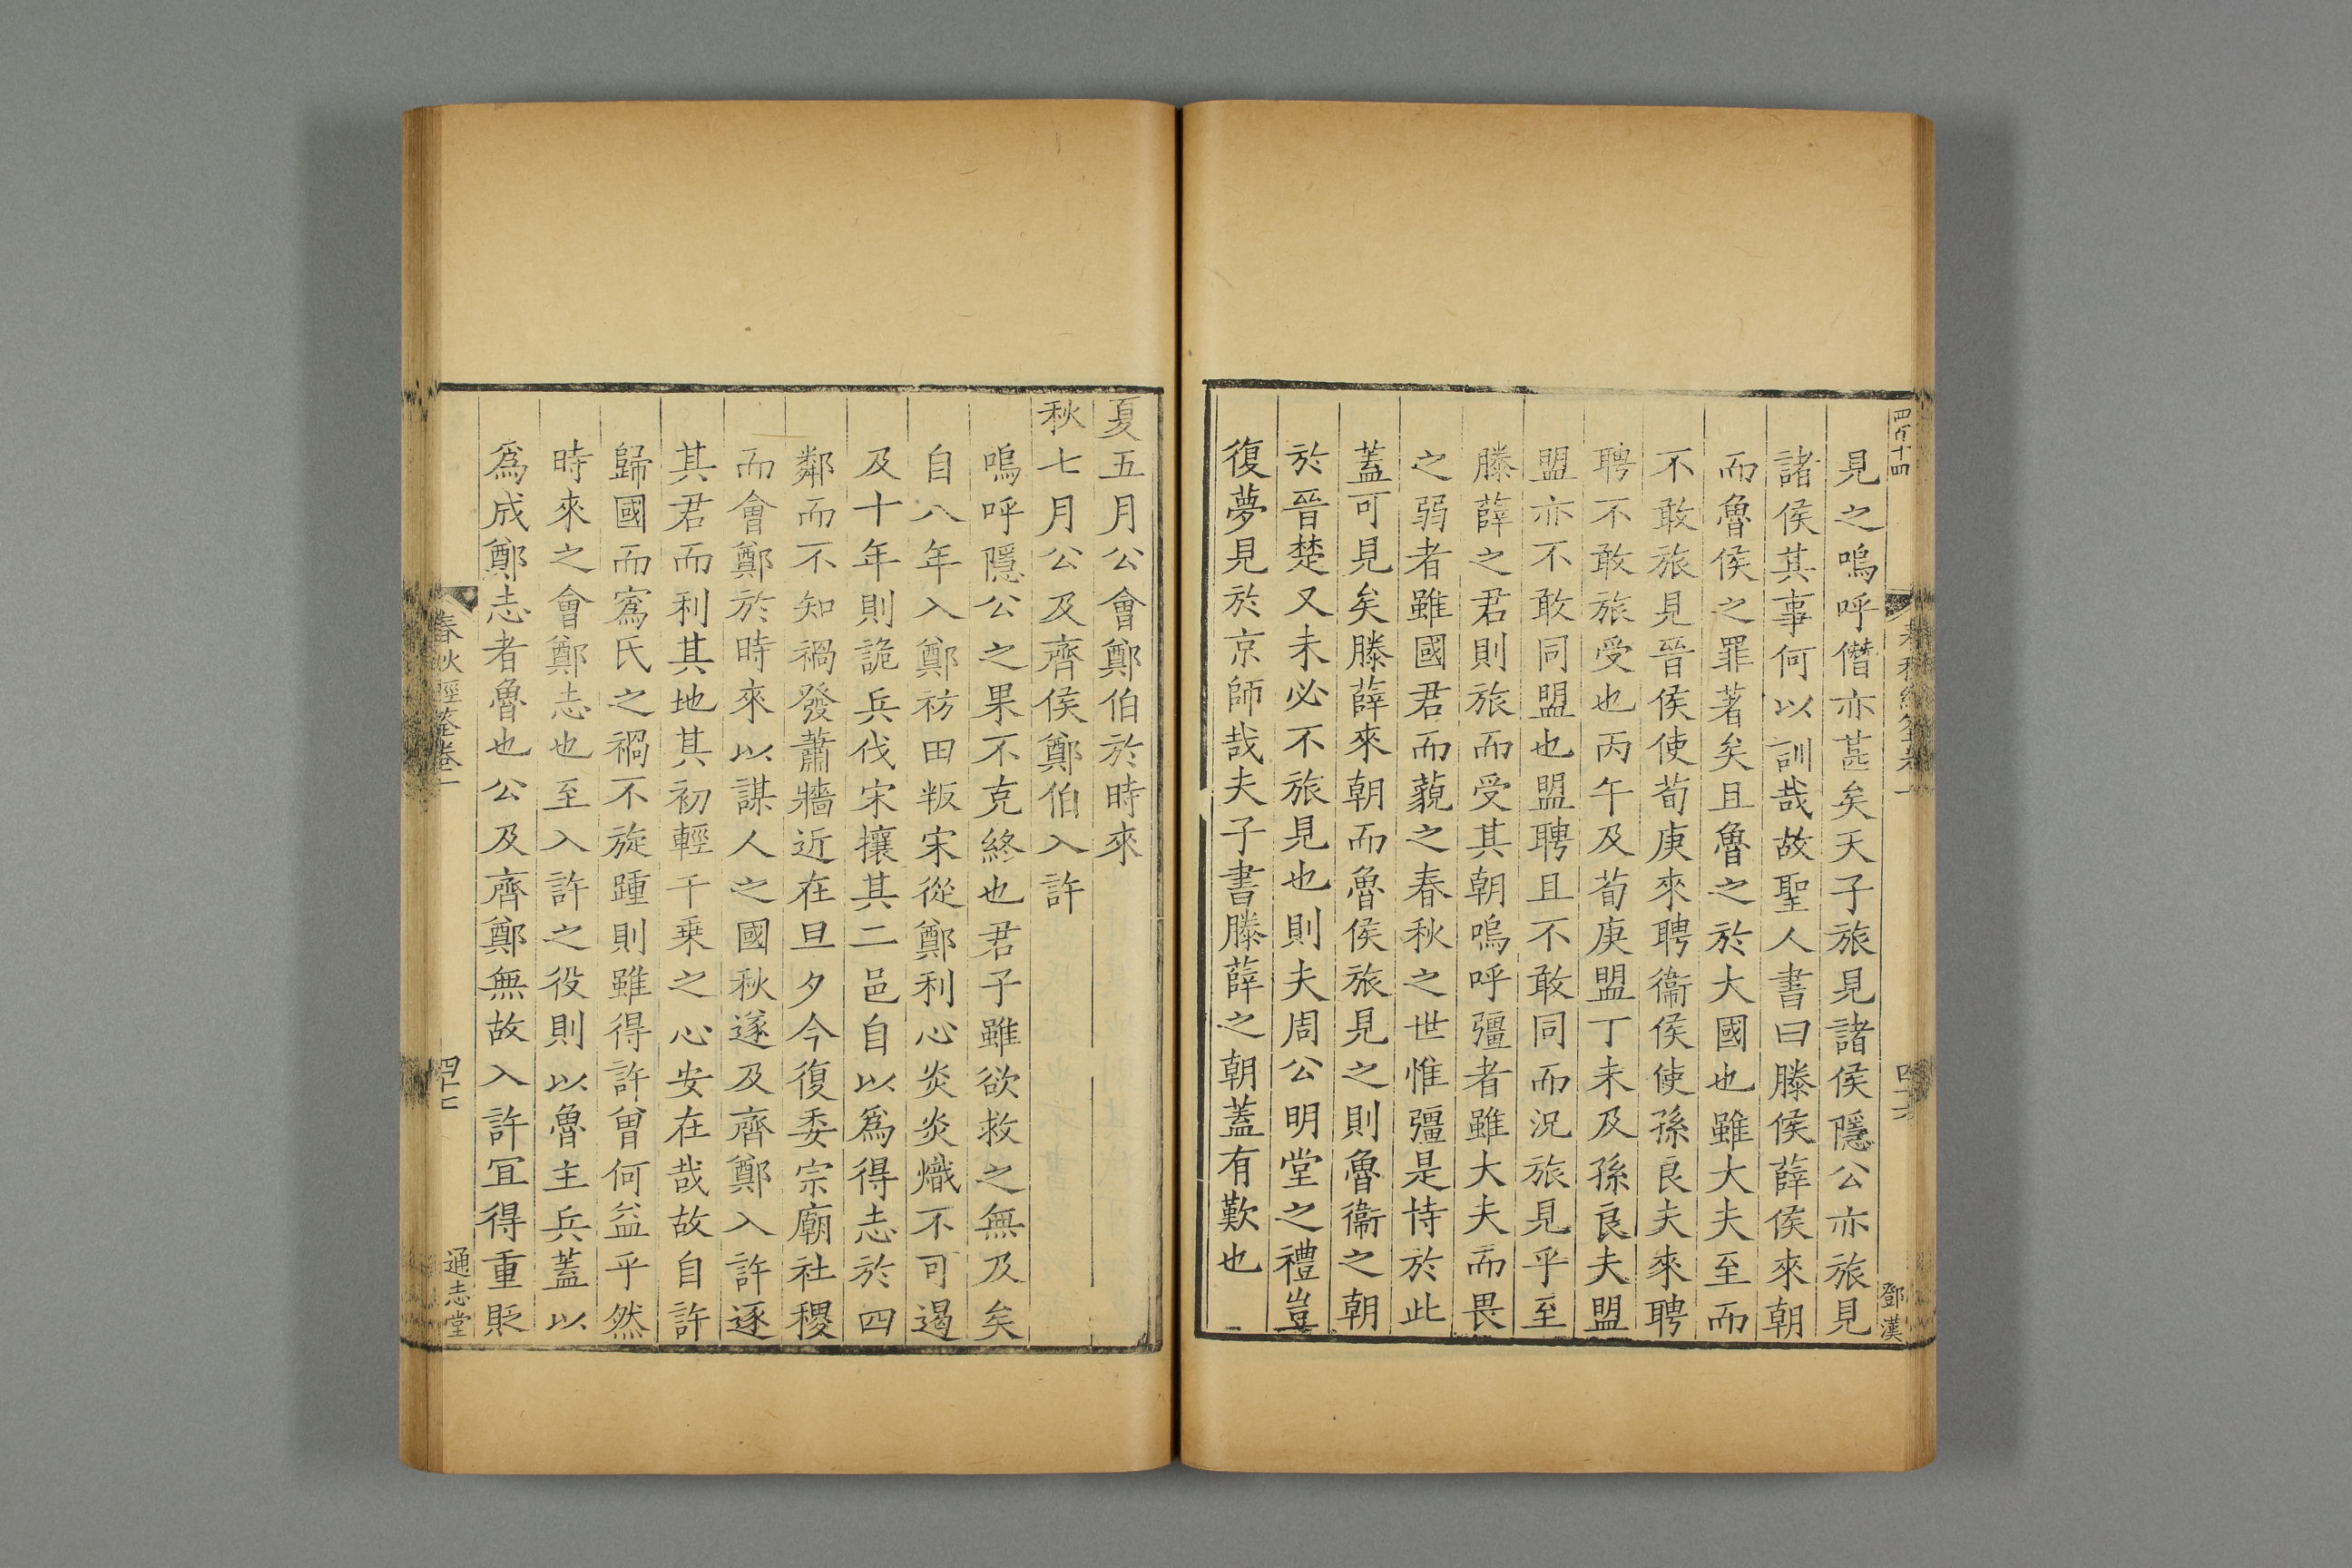 四百十四
鄧漢
見之嗚呼僭亦甚矣天子旅見諸侯隱公亦旅見
諸侯其事何以訓哉故聖人書曰滕侯薛侯來朝
而魯侯之罪著矣且魯之於大國也雖大夫至而
不敢旅見晉侯使荀庚來聘衞侯使孫良夫來聘
聘不敢旅受也丙午及荀庚盟丁未及孫良夫盟
盟亦不敢同盟也盟聘且不敢同而況旅見乎至
滕薛之君則旅而受其朝嗚呼彊者雖大夫而畏
之弱者雖國君而藐之春秋之世惟彊是恃於此
蓋可見矣滕薛來朝而魯侯旅見之則魯衞之朝
於晉楚又未必不旅見也則夫周公明堂之禮豈
復夢見於京師哉夫子書滕薛之朝蓋有歎也
夏五月公會鄭伯於時來
秋七月公及齊侯鄭伯入許
嗚呼隱公之果不克終也君子雖欲救之無及矣
自八年入鄭祊田叛宋從鄭利心炎炎熾不可遏
及十年則詭兵伐宋攘其二邑自以爲得志於四
鄰而不知禍發蕭牆近在旦夕今復委宗廟社稷
而會鄭於時來以謀人之國秋遂及齊鄭入許逐
其君而利其地其初輕千乗之心安在哉故自許
歸國而寪氏之禍不旋踵則雖得許曾何益乎然
時來之會鄭志也至入許之役則以魯主兵蓋以
爲成鄭志者魯也公及齊鄭無故入許宜得重貶
春秋經筌卷一
四十七
通志堂